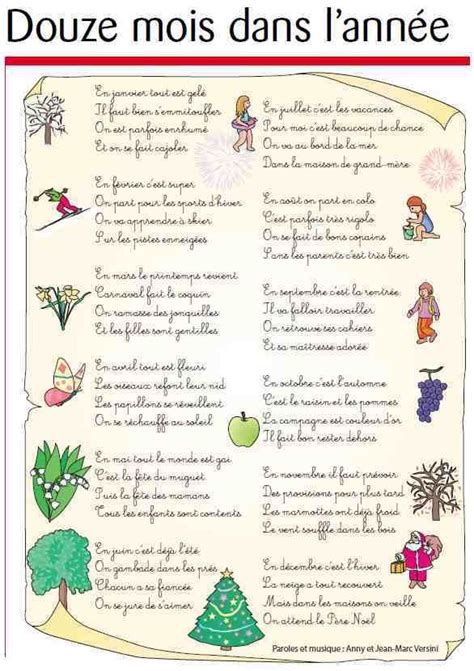 Douze mois dans l'année
En janvier tout est gelé
Il faut bien s'emmitoufler
On est parfois enrhumé
Et on se fait cajoler
En février c'est super
On part pour les sports d'hiver
On va apprendre à skier
Sur les pistes enneigées
En mars le printemps revient
Carnaval fait le coquin
On ramasse des jonquilles
Et les filles sont gentilles
En avril tout est fleuri
Les oiseaux refont leur nid
Les papillons se réveillent
On se réchauffe au soleil
En mai tout le monde est gai
C'est la fête du muguet
Puis la fête des mamans
Tous les enfants sont contents
En juin c'est déjà l'été
On gambade dans les prés
Chacun a sa fiancée
On se jure de s'aimer
En juillet c'est les vacances
Pour moi c'est beaucoup de chance
On va au bord de la mer
Dans la maison de grand-mère
En août on part en colo
C'est parfois très rigolo
On se fait de bons copains
Sans les parents c'est très bien
En septembre c'est la rentrée
Il va falloir travailler
On retrouve ses cahiers
Et sa maîtresse adorée
En octobre c'est l'automne
C'est le raisin et les pommes
La campagne est couleur d'or
Il fait bon rester dehors
En novembre il faut prévoir
Des provisions pour plus tard
Les marmottes ont déjà froid
Le vent souffle dans les bois
En décembre c'est l'hiver
La neige a tout recouvert
Mais dans les maisons on veille
On attend le Père Noël
Paroles et musique : Anny et Jean-Marc Versini